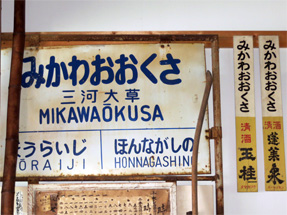 みかわおおくさ
三河大草
MIKAWAŌKUSA
ほんながしの
ŌRAIJI
HONNAGASHINO
みかわおおくさ
清酒
玉桂
みかわおおくさ
清酒
蓬莱泉